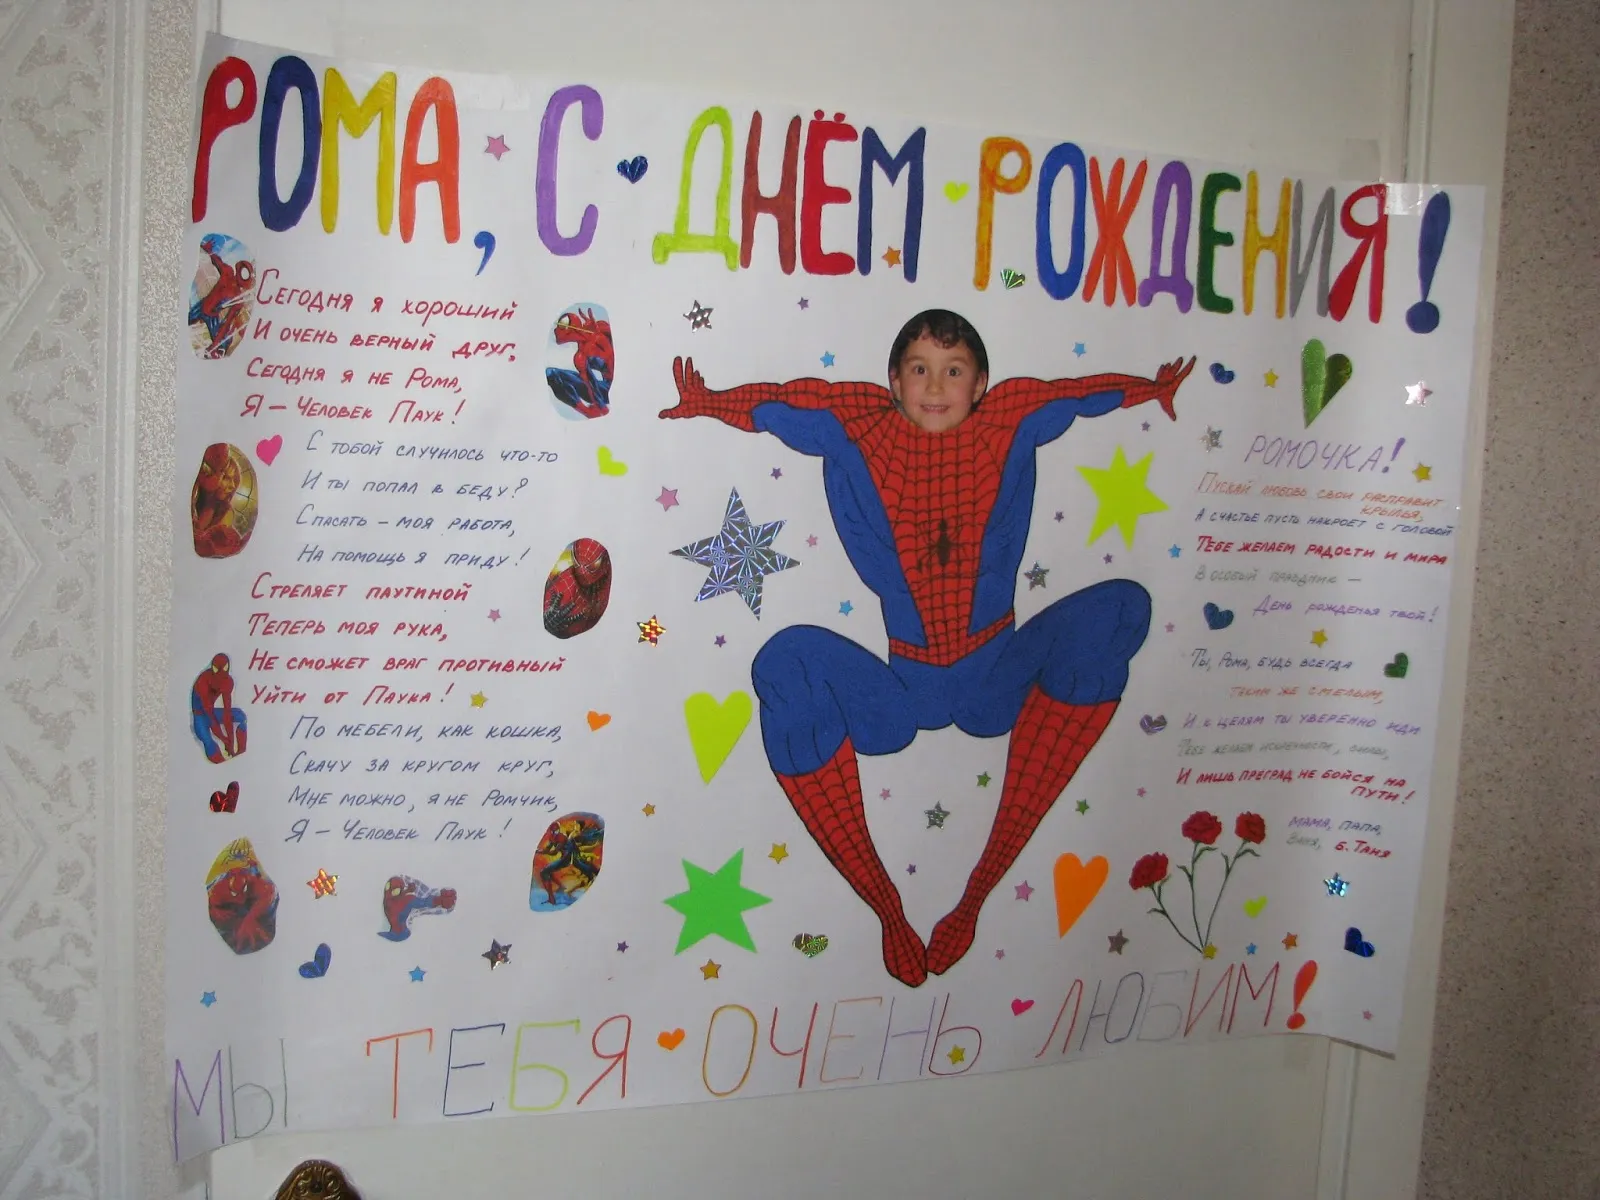 РОМА, С ДНЁМ РОЖДЕНИЯ!
СЕГОДНЯ Я ХОРОШИЙ
И ОЧЕНЬ ВЕРНЫЙ ДРУГ.
СЕГОДНЯ Я НЕ РОМА,
Я – ЧЕЛОВЕК ПАУК!
С ТОБОЙ СЛУЧИЛОСЬ ЧТО-ТО
И ТЫ ПОПАЛ В БЕДУ?
СПАСАТЬ – МОЯ РАБОТА,
НА ПОМОЩЬ Я ПРИДУ!
СТРЕЛЯЕТ ПАУТИНОЙ
ТЕПЕРЬ МОЯ РУКА,
НЕ СМОЖЕТ ВРАГ ПРОТИВНЫЙ
УЙТИ ОТ ПАУКА!
ПО МЕБЕЛИ, КАК КОШКА,
СКАЧУ ЗА КРУГОМ КРУГ,
МНЕ МОЖНО, Я НЕ РОМЧИК,
Я – ЧЕЛОВЕК ПАУК!
РОМОЧКА!
ПУСКАЙ ЛЮБОВЬ СВОИ РАСПРАВИТ
КРЫЛЬЯ,
А СЧАСТЬЕ ПУСТЬ НАКРОЕТ С ГОЛОВОЙ
ТЕБЕ ЖЕЛАЕМ РАДОСТИ И МИРА
В ОСОБЫЙ ПРАЗДНИК –
ДЕНЬ РОЖДЕНЬЯ ТВОЙ!
ТЫ, РОМА, БУДЬ ВСЕГДА
ТАКИМ ЖЕ СМЕЛЫМ,
И К ЦЕЛЯМ ТЫ УВЕРЕННО ИДИ
ТЕБЕ ЖЕЛАЕМ
И ЛИШЬ ПРЕГРАД НЕ БОЙСЯ НА
ПУТИ!
МАМА, ПАПА,
ВАНЯ, Б. ТАНЯ
МЫ ТЕБЯ ОЧЕНЬ ЛЮБИМ!